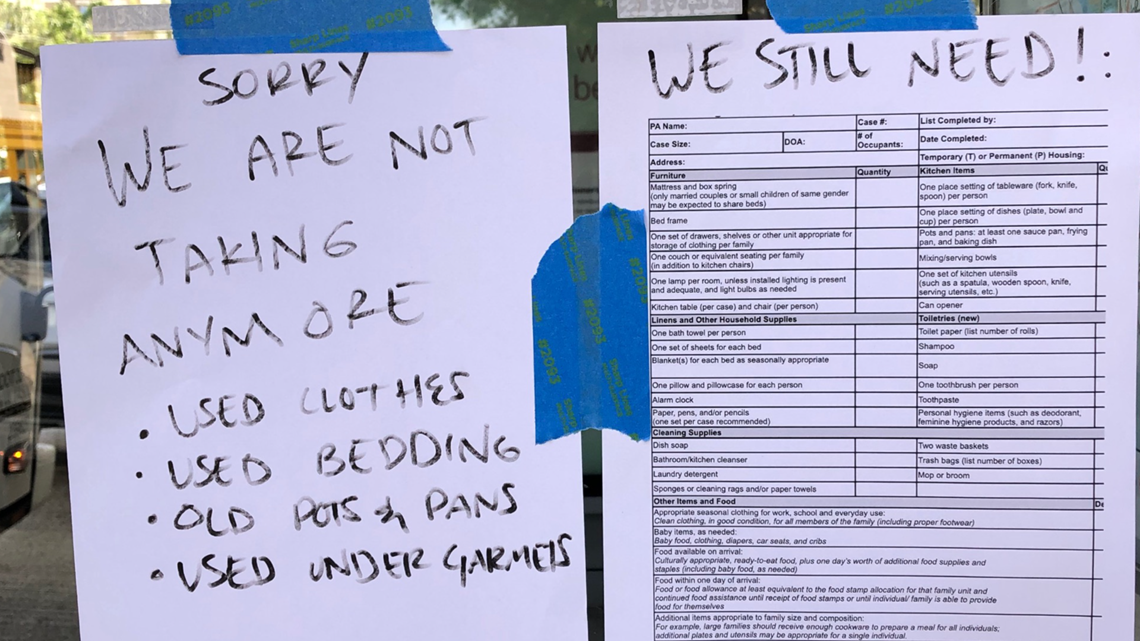 SORRY
WE ARE NOT
TAKING
ANYMORE
• USED CLOTHES
• USED BEDDING
• OLD POTS & PANS
• USED UNDER GARMETS
WE STILL NEED!:
PA Name:
Case #:
List Completed by:
Case Size:
DOA:
# of
Occupants:
Date Completed:
Address:
Temporary (T) or Permanent (P) Housing:
Furniture
Quantity
Kitchen Items
Mattress and box spring
(only married couples or small children of same gender
may be expected to share beds)
One place setting of tableware (fork, knife,
spoon) per person
Bed frame
One place setting of dishes (plate, bowl and
cup) per person
One set of drawers, shelves or other unit appropriate for
storage of clothing per family
Pots and pans: at least one sauce pan, frying
pan, and baking dish
One couch or equivalent seating per family
(in addition to kitchen chairs)
Mixing/serving bowls
One lamp per room, unless installed lighting is present
and adequate, and light bulbs as needed
One set of kitchen utensils
(such as a spatula, wooden spoon, knife,
serving utensils, etc.)
Kitchen table (per case) and chair (per person)
Can opener
Linens and Other Household Supplies
Toiletries (new)
One bath towel per person
Toilet paper (list number of rolls)
One set of sheets for each bed
Shampoo
Blanket(s) for each bed as seasonally appropriate
Soap
One pillow and pillowcase for each person
One toothbrush per person
Alarm clock
Toothpaste
Paper, pens, and/or pencils
(one set per case recommended)
Personal hygiene items (such as deodorant,
feminine hygiene products, and razors)
Cleaning Supplies
Dish soap
Two waste baskets
Bathroom/kitchen cleanser
Trash bags (list number of boxes)
Laundry detergent
Mop or broom
Sponges or cleaning rags and/or paper towels
Other Items and Food
Appropriate seasonal clothing for work, school and everyday use:
Clean clothing, in good condition, for all members of the family (including proper footwear)
Baby items, as needed:
Baby food, clothing, diapers, car seats, and cribs
Food available on arrival:
Culturally appropriate, ready-to-eat food, plus one day's worth of additional food supplies and
staples (including baby food, as needed)
Food within one day of arrival:
Food or food allowance at least equivalent to the food stamp allocation for that family unit and
continued food assistance until receipt of food stamps or until individual/ family is able to provide
food for themselves
Additional items appropriate to family size and composition:
For example, large families should receive enough cookware to prepare a meal for all individuals;
additional plates and utensils may be appropriate for a single individual.
#2095
#2095
#2095
#2095